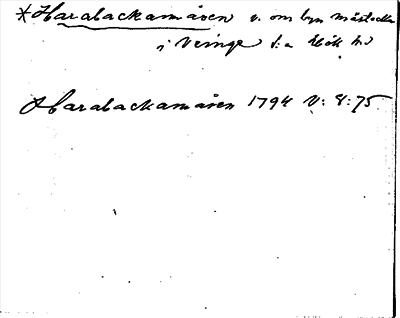 *Harabackamåsen v. om byn Mästocka
i Veinge s:n Hök hd
Harabackamåsen 1794 V: 8:75